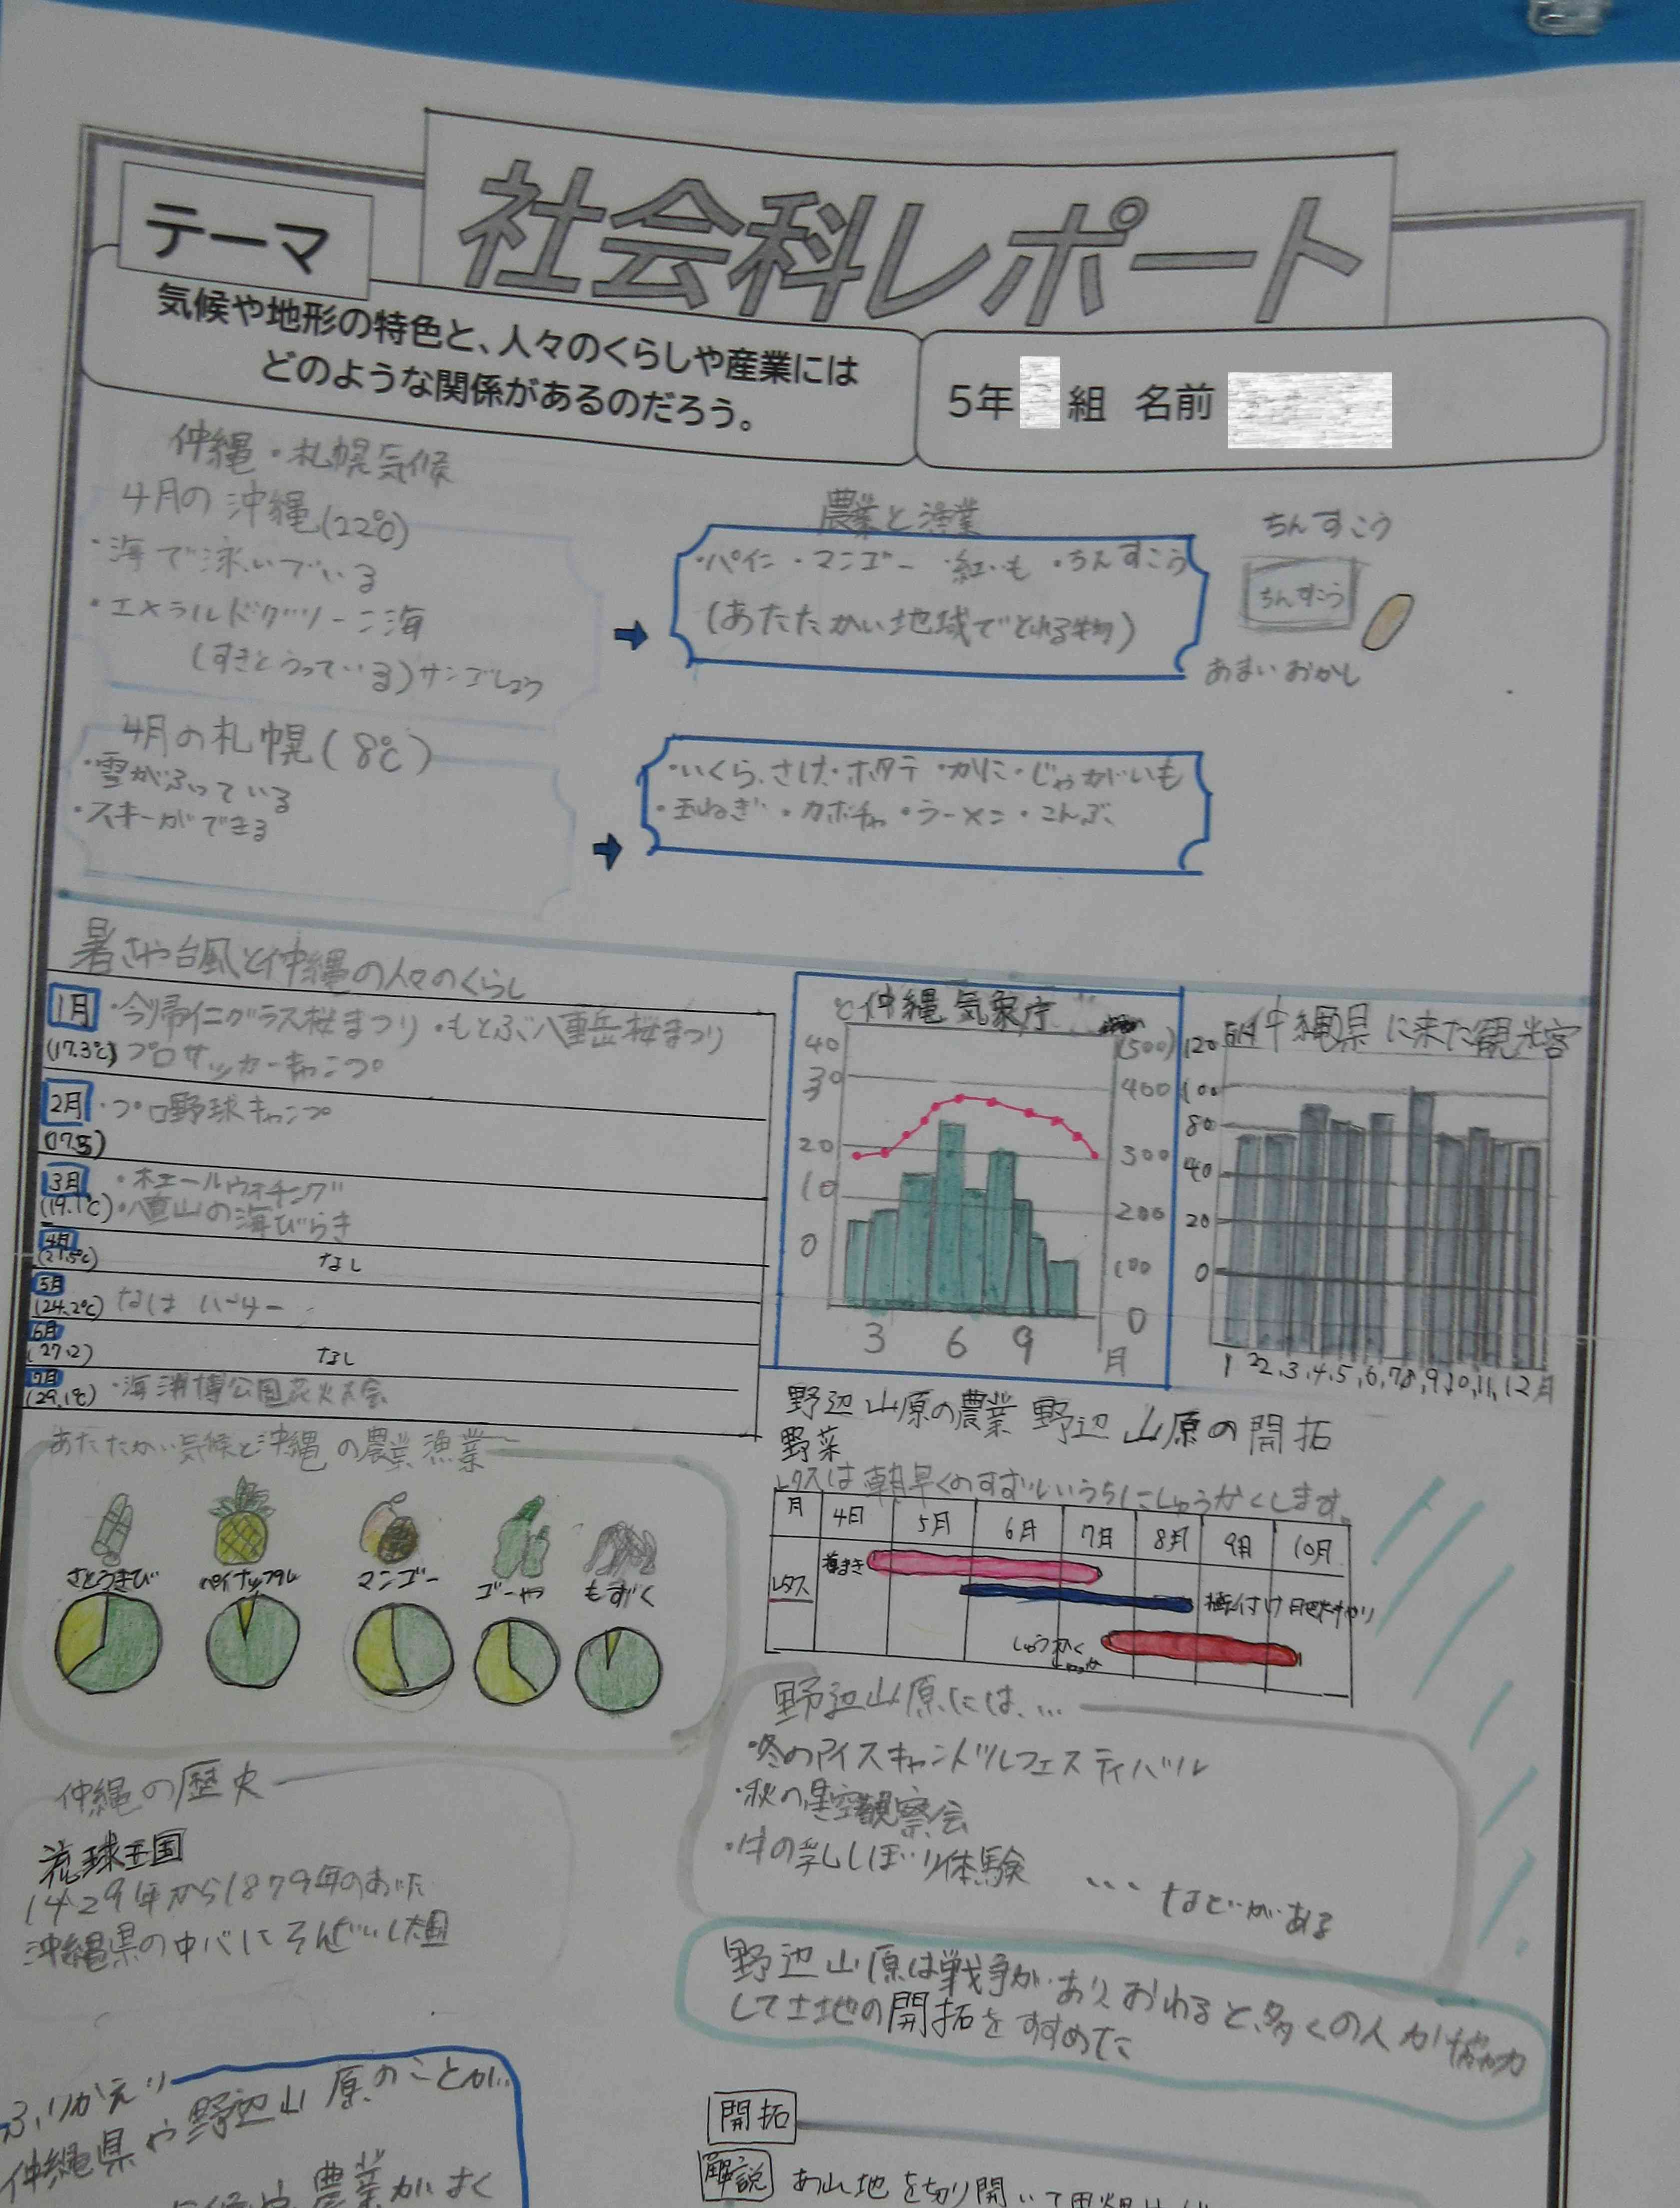 社会科レポート
テーマ
気候や地形の特色と、人々のくらしや産業には
どのような関係があるのだろう。
5年 組 名前
沖縄・札幌気候
4月の沖縄(22℃)
・海で泳いでいる
・エメラルドグリーン海
(すきとうっている)サンゴしょう
農業と漁業
・パイン・マンゴー・紅いも・ちんすこう
(あたたかい地域でとれる物)
ちんすこう
ちんすこう
あまいおかし
4月の札幌(8℃)
・雪がふっている
・スキーができる
・いくら、さけ・ホタテ・かに・じゃがいも
・玉ねぎ・カボチャ・ラーメン・こんぶ
暑さや台風と沖縄の人々のくらし
1月 ・今帰仁グラスク桜まつり・もとぶ八重岳桜まつり
(17.3℃) プロサッカーキャンプ
2月 ・プロ野球キャンプ
(17.5)
3月 ・ホエールウォチング
(19.1℃)・八重山の海びらき
4月
(21.5℃) なし
5月
(24.2℃) なは ハーリー
6月
(27.2) なし
7月
(29.1℃) ・海洋博公園花火大会
℃ 沖縄 気象庁
40 (500)
30 400
20 300
10 200
0 100
0
3 6 9 月
沖縄県に来た観光客
120
100
80
40
20
0
1 2 3.4.5.6.7 8.9.10.11.12月
あたたかい気候と沖縄の農業漁業
さとうきび パイナップル マンゴー ゴーヤ もずく
野辺山原の農業 野辺山原の開拓
野菜
レタスは朝早くのすずしいうちにしゅうかくします。
月 4日 5月 6月 7月 8月 9月 10月
レタス
しゅうかく
野辺山原には…
・冬のアイスキャンドルフェスティバル
・秋の星空観察会
・牛の乳しぼり体験 …などがある
沖縄の歴史
琉球王国
1429年から1879年のあいだ
沖縄県の中バにそんざいした国
野辺山原は戦争がありおわると、多くの人が協力
して土地の開拓をすすめた
ふりかえり
沖縄県や野辺山原のことが
農業がよく
開拓
解説 山地を切り開いて田畑